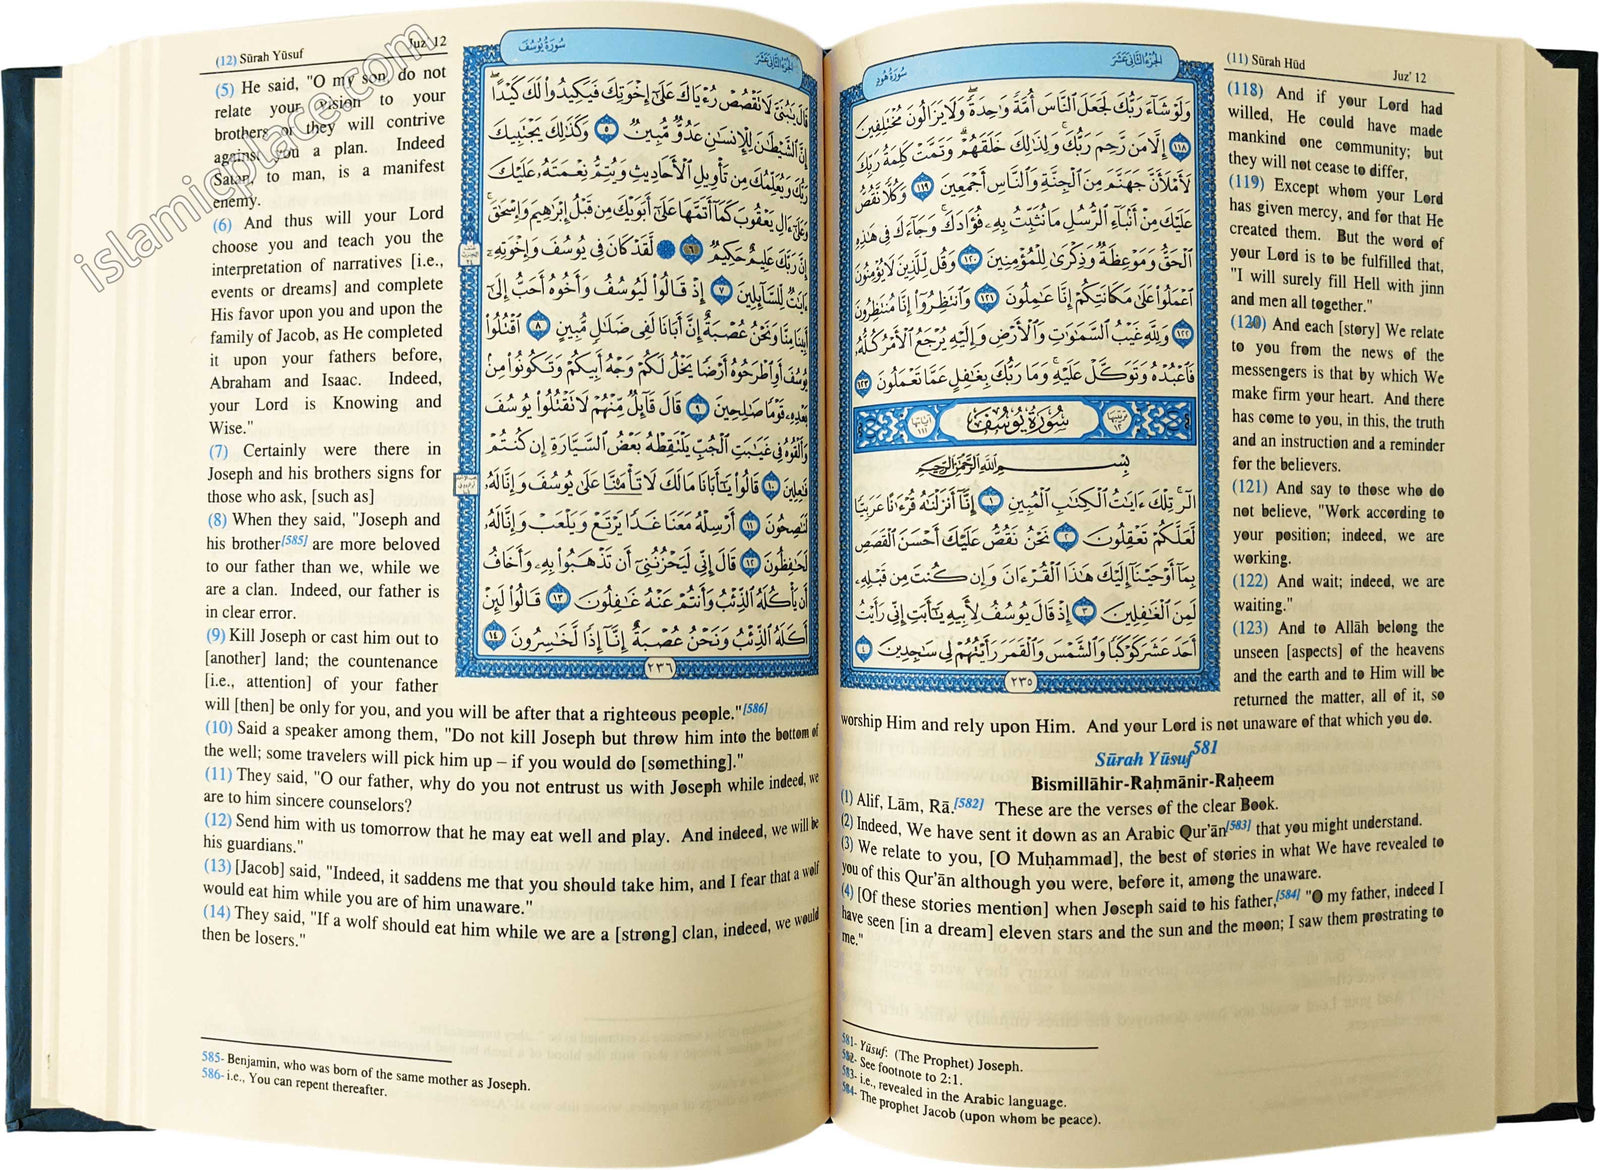 (11) Sūrah Hūd
Juz' 12
الجزء الثاني عشر
سورة هود
وَلَوْ شَآءَ رَبُّكَ لَجَعَلَ ٱلنَّاسَ أُمَّةً وَٰحِدَةً ۖ وَلَا يَزَالُونَ مُخْتَلِفِينَ
١١٨ إِلَّا مَن رَّحِمَ رَبُّكَ ۚ وَلِذَٰلِكَ خَلَقَهُمْ ۗ وَتَمَّتْ كَلِمَةُ رَبِّكَ
لَأَمْلَأَنَّ جَهَنَّمَ مِنَ ٱلْجِنَّةِ وَٱلنَّاسِ أَجْمَعِينَ ١١٩ وَكُلًّا نَّقُصُّ
عَلَيْكَ مِنْ أَنۢبَآءِ ٱلرُّسُلِ مَا نُثَبِّتُ بِهِۦ فُؤَادَكَ ۚ وَجَآءَكَ فِى هَٰذِهِ
ٱلْحَقُّ وَمَوْعِظَةٌ وَذِكْرَىٰ لِلْمُؤْمِنِينَ ١٢٠ وَقُل لِّلَّذِينَ لَا يُؤْمِنُونَ
ٱعْمَلُوا۟ عَلَىٰ مَكَانَتِكُمْ إِنَّا عَٰمِلُونَ ١٢١ وَٱنتَظِرُوٓا۟ إِنَّا مُنتَظِرُونَ
١٢٢ وَلِلَّهِ غَيْبُ ٱلسَّمَٰوَٰتِ وَٱلْأَرْضِ وَإِلَيْهِ يُرْجَعُ ٱلْأَمْرُ كُلُّهُۥ
فَٱعْبُدْهُ وَتَوَكَّلْ عَلَيْهِ ۚ وَمَا رَبُّكَ بِغَٰفِلٍ عَمَّا تَعْمَلُونَ ١٢٣
ترتيبها ١٢ سورة يوسف آياتها ١١١
بِسْمِ ٱللَّهِ ٱلرَّحْمَٰنِ ٱلرَّحِيمِ
الٓر ۚ تِلْكَ ءَايَٰتُ ٱلْكِتَٰبِ ٱلْمُبِينِ ١ إِنَّآ أَنزَلْنَٰهُ قُرْءَٰنًا عَرَبِيًّا
لَّعَلَّكُمْ تَعْقِلُونَ ٢ نَحْنُ نَقُصُّ عَلَيْكَ أَحْسَنَ ٱلْقَصَصِ
بِمَآ أَوْحَيْنَآ إِلَيْكَ هَٰذَا ٱلْقُرْءَانَ وَإِن كُنتَ مِن قَبْلِهِۦ
لَمِنَ ٱلْغَٰفِلِينَ ٣ إِذْ قَالَ يُوسُفُ لِأَبِيهِ يَٰٓأَبَتِ إِنِّى رَأَيْتُ
أَحَدَ عَشَرَ كَوْكَبًا وَٱلشَّمْسَ وَٱلْقَمَرَ رَأَيْتُهُمْ لِى سَٰجِدِينَ ٤
٢٣٥
(118) And if your Lord had
willed, He could have made
mankind one community; but
they will not cease to differ,
(119) Except whom your Lord
has given mercy, and for that He
created them. But the word of
your Lord is to be fulfilled that,
"I will surely fill Hell with jinn
and men all together."
(120) And each [story] We relate
to you from the news of the
messengers is that by which We
make firm your heart. And there
has come to you, in this, the truth
and an instruction and a reminder
for the believers.
(121) And say to those who do
not believe, "Work according to
your position; indeed, we are
working.
(122) And wait; indeed, we are
waiting."
(123) And to Allāh belong the
unseen [aspects] of the heavens
and the earth and to Him will be
returned the matter, all of it, so
worship Him and rely upon Him. And your Lord is not unaware of that which you do.
Sūrah Yūsuf581
Bismillāhir-Raḥmānir-Raḥeem
(1) Alif, Lām, Rā.[582] These are the verses of the clear Book.
(2) Indeed, We have sent it down as an Arabic Qur'ān[583] that you might understand.
(3) We relate to you, [O Muḥammad], the best of stories in what We have revealed to
you of this Qur'ān although you were, before it, among the unaware.
(4) [Of these stories mention] when Joseph said to his father,[584] "O my father, indeed I
have seen [in a dream] eleven stars and the sun and the moon; I saw them prostrating to
me."
581- Yūsuf: (The Prophet) Joseph.
582- See footnote to 2:1.
583- i.e., revealed in the Arabic language.
584- The prophet Jacob (upon whom be peace).
(12) Sūrah Yūsuf
Juz' 12
الجزء الثاني عشر
سورة يوسف
قَالَ يَٰبُنَىَّ لَا تَقْصُصْ رُءْيَاكَ عَلَىٰٓ إِخْوَتِكَ فَيَكِيدُوا۟ لَكَ كَيْدًا ۖ
إِنَّ ٱلشَّيْطَٰنَ لِلْإِنسَٰنِ عَدُوٌّ مُّبِينٌ ٥ وَكَذَٰلِكَ يَجْتَبِيكَ
رَبُّكَ وَيُعَلِّمُكَ مِن تَأْوِيلِ ٱلْأَحَادِيثِ وَيُتِمُّ نِعْمَتَهُۥ عَلَيْكَ
وَعَلَىٰٓ ءَالِ يَعْقُوبَ كَمَآ أَتَمَّهَا عَلَىٰٓ أَبَوَيْكَ مِن قَبْلُ إِبْرَٰهِيمَ وَإِسْحَٰقَ ۚ
إِنَّ رَبَّكَ عَلِيمٌ حَكِيمٌ ٦ لَّقَدْ كَانَ فِى يُوسُفَ وَإِخْوَتِهِۦٓ
ءَايَٰتٌ لِّلسَّآئِلِينَ ٧ إِذْ قَالُوا۟ لَيُوسُفُ وَأَخُوهُ أَحَبُّ إِلَىٰٓ
أَبِينَا مِنَّا وَنَحْنُ عُصْبَةٌ إِنَّ أَبَانَا لَفِى ضَلَٰلٍ مُّبِينٍ ٨ ٱقْتُلُوا۟
يُوسُفَ أَوِ ٱطْرَحُوهُ أَرْضًا يَخْلُ لَكُمْ وَجْهُ أَبِيكُمْ وَتَكُونُوا۟ مِنۢ
بَعْدِهِۦ قَوْمًا صَٰلِحِينَ ٩ قَالَ قَآئِلٌ مِّنْهُمْ لَا تَقْتُلُوا۟ يُوسُفَ
وَأَلْقُوهُ فِى غَيَٰبَتِ ٱلْجُبِّ يَلْتَقِطْهُ بَعْضُ ٱلسَّيَّارَةِ إِن كُنتُمْ
فَٰعِلِينَ ١٠ قَالُوا۟ يَٰٓأَبَانَا مَا لَكَ لَا تَأْمَ۫نَّا عَلَىٰ يُوسُفَ وَإِنَّا لَهُۥ
لَنَٰصِحُونَ ١١ أَرْسِلْهُ مَعَنَا غَدًا يَرْتَعْ وَيَلْعَبْ وَإِنَّا لَهُۥ
لَحَٰفِظُونَ ١٢ قَالَ إِنِّى لَيَحْزُنُنِىٓ أَن تَذْهَبُوا۟ بِهِۦ وَأَخَافُ
أَن يَأْكُلَهُ ٱلذِّئْبُ وَأَنتُمْ عَنْهُ غَٰفِلُونَ ١٣ قَالُوا۟ لَئِنْ
أَكَلَهُ ٱلذِّئْبُ وَنَحْنُ عُصْبَةٌ إِنَّآ إِذًا لَّخَٰسِرُونَ ١٤
٢٣٦
(5) He said, "O my son, do not
relate your vision to your
brothers or they will contrive
against you a plan. Indeed
Satan, to man, is a manifest
enemy.
(6) And thus will your Lord
choose you and teach you the
interpretation of narratives [i.e.,
events or dreams] and complete
His favor upon you and upon the
family of Jacob, as He completed
it upon your fathers before,
Abraham and Isaac. Indeed,
your Lord is Knowing and
Wise."
(7) Certainly were there in
Joseph and his brothers signs for
those who ask, [such as]
(8) When they said, "Joseph and
his brother[585] are more beloved
to our father than we, while we
are a clan. Indeed, our father is
in clear error.
(9) Kill Joseph or cast him out to
[another] land; the countenance
[i.e., attention] of your father
will [then] be only for you, and you will be after that a righteous people."[586]
(10) Said a speaker among them, "Do not kill Joseph but throw him into the bottom of
the well; some travelers will pick him up – if you would do [something]."
(11) They said, "O our father, why do you not entrust us with Joseph while indeed, we
are to him sincere counselors?
(12) Send him with us tomorrow that he may eat well and play. And indeed, we will be
his guardians."
(13) [Jacob] said, "Indeed, it saddens me that you should take him, and I fear that a wolf
would eat him while you are of him unaware."
(14) They said, "If a wolf should eat him while we are a [strong] clan, indeed, we would
then be losers."
585- Benjamin, who was born of the same mother as Joseph.
586- i.e., You can repent thereafter.
islamicplace.com